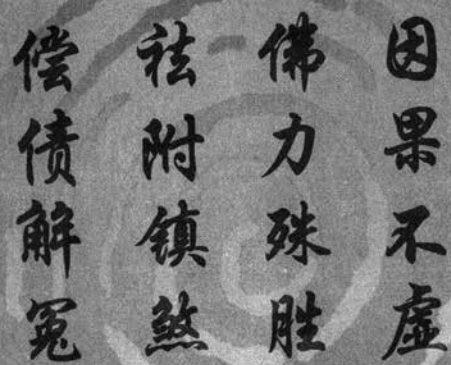 因果不虚
佛力殊胜
祛附镇煞
偿债解冤